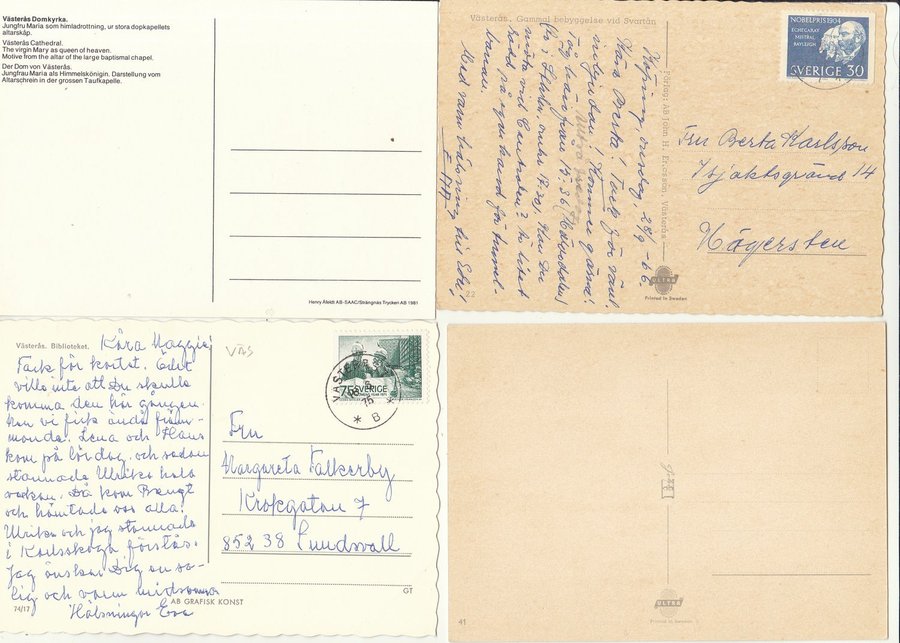 Västerås Domkyrka.
Jungfru Maria som himladrottning, ur stora dopkapellets
altarskåp.
Västerås Cathedral.
The virgin Mary as queen of heaven.
Motive from the altar of the large baptismal chapel.
Der Dom von Västerås.
Jungfrau Maria als Himmelskönigin. Darstellung vom
Altarschrein in der grossen Taufkapelle.
Henry Åfeldt AB-SAAC/Strängnäs Tryckeri AB 1981
Västerås. Gammal bebyggelse vid Svartån
onsdag, 28/9 -66.
Kära Berta! Tack för vänl.
inbjudan! Kommer gärna!
Tåg härifrån 15.36
möta vid Centralen? Är litet
rädd på egen hand för tunnel-
banan.
Med varm hälsning
22
Förlag: AB John H. Ericsson, Västerås
ULTRA
Printed in Sweden
NOBELPRIS 1904
ECHEGARAY
MISTRAL
RAYLEIGH
SVERIGE 30
Fru Berta Karlsson
Isjaktsgränd 14
Hägersten
Västerås. Biblioteket.
Kära Maggie!
Tack för kortet. Ödet
ville inte att Du skulle
komma den här gången.
Men vi fick ändå främ-
mande. Lena och Hans
kom på lördag och sedan
stannade Ulrika hela
veckan. Så kom Bengt
och hämtade oss alla.
Ulrika och jag stannade
i Karlskoga förstås.
Jag önskar Dig en so-
lig och varm midsommar
Hälsningar Eva
74/17
AB GRAFISK KONST
GT
VÄS
VÄSTERÅS
75
B
75 SVERIGE
Fru
Margareta Falkerby
Krokgatan 7
852 38 Sundsvall
41
ULTRA
Printed in Sweden